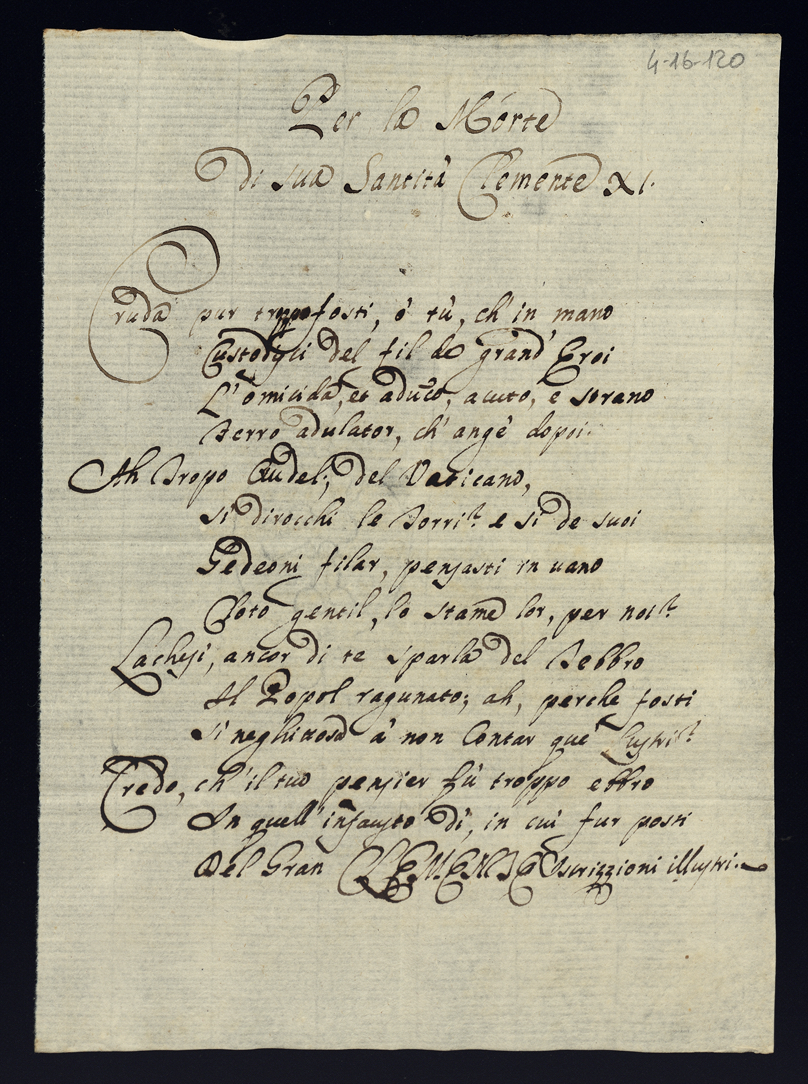 4-16-120
Per la Morte
di sua Santità Clemente XI.
Cruda pur troppo fosti, ò tù, ch' in mano
Custodisci del fil de grand' Eroi
L' omicida, et adu͞co, acuto, e strano
Ferro adulator, ch' ange dopoi.
Ah Tropo Crudel; del Vaticano,
si dirocchi le Torri? e si de suoi
Gedeoni filar, pensasti in uano
Cloto gentil, lo stame lor, per noi?
Lachesi, ancor di te sparla del Tebbro
Il Popol ragunato; ah, perche fosti
si neghittosa à non Contar que' Lustri?
Credo, ch' il tuo pensier fù troppo ebbro
In quell' infausto dì, in cui fur posti
Del Gran CLEMENTE Iscrizzioni illustri.